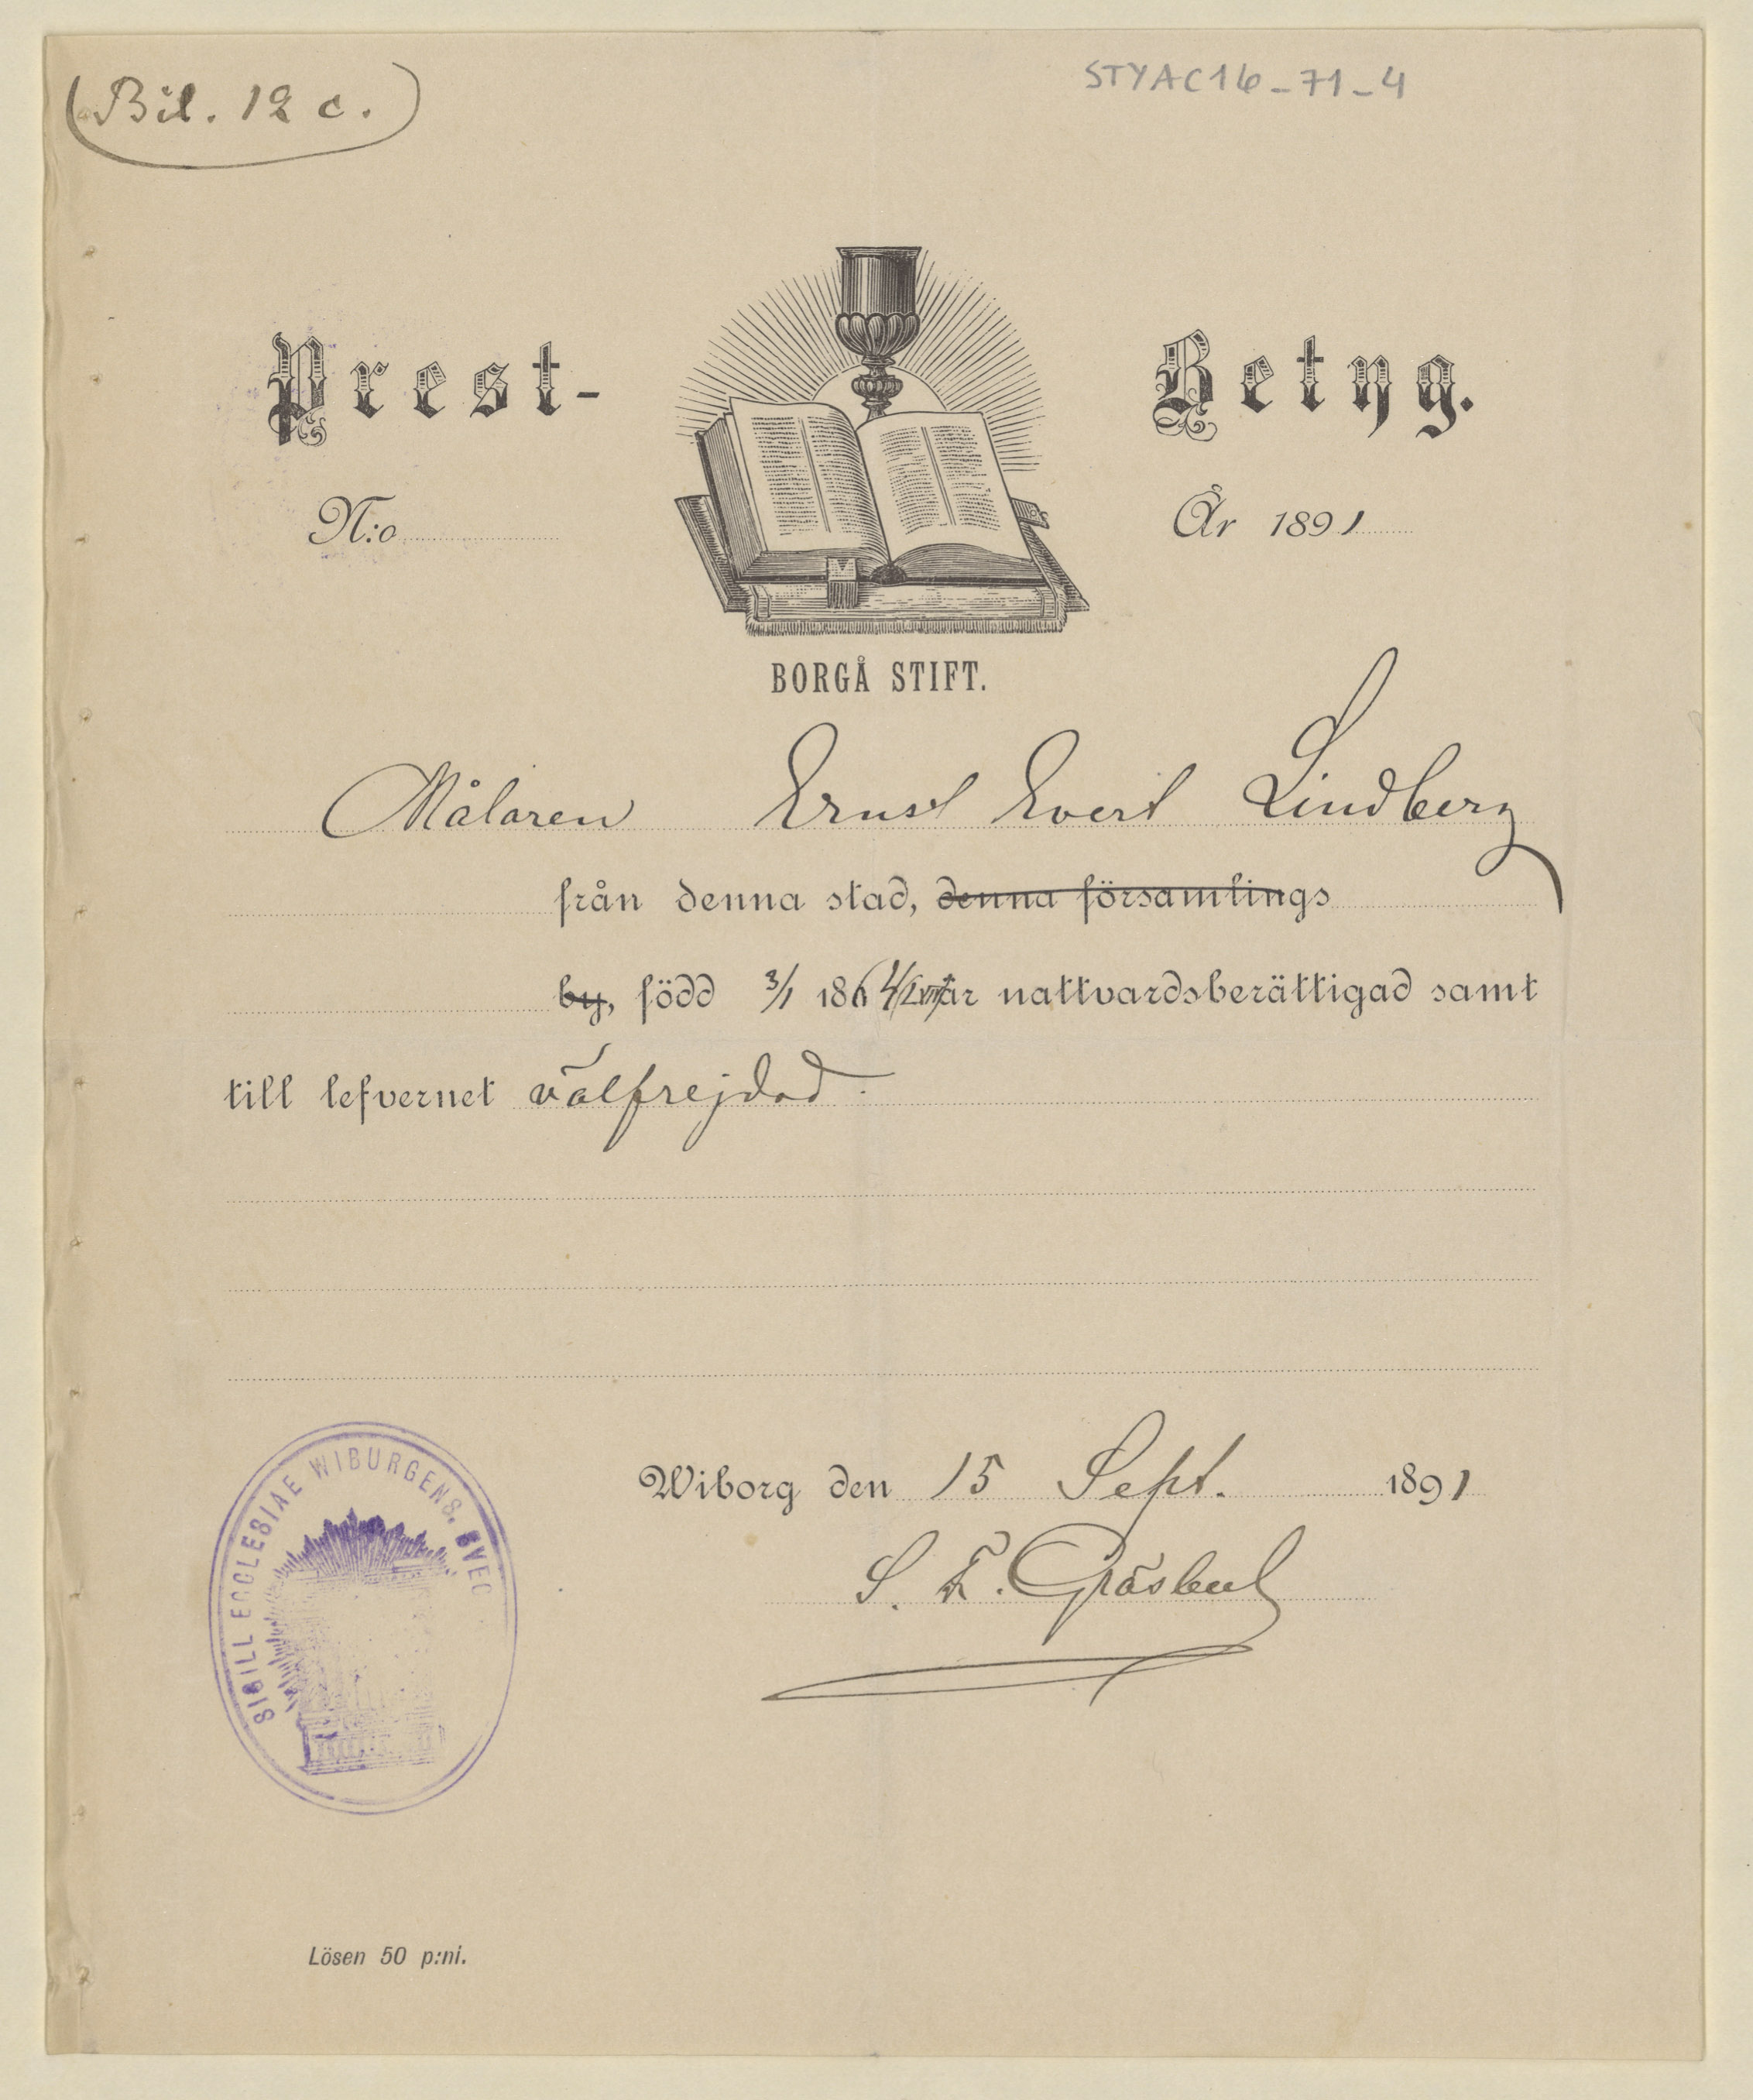 (Bil. 12 c.)
STYAC16_71_4
Prest- Betyg.
N:o
År 1891
BORGÅ STIFT.
Målaren Ernst Evert Lindberg
från denna stad, denna församlings
by, född 3/1 186 är nattvardsberättigad samt
till lefvernet välfrejdad.
SIGILL ECCLESIAE WIBURGENS. SVEC
Wiborg den 15 Sept. 1891
S. F. Gräsbeck
Lösen 50 p:ni.